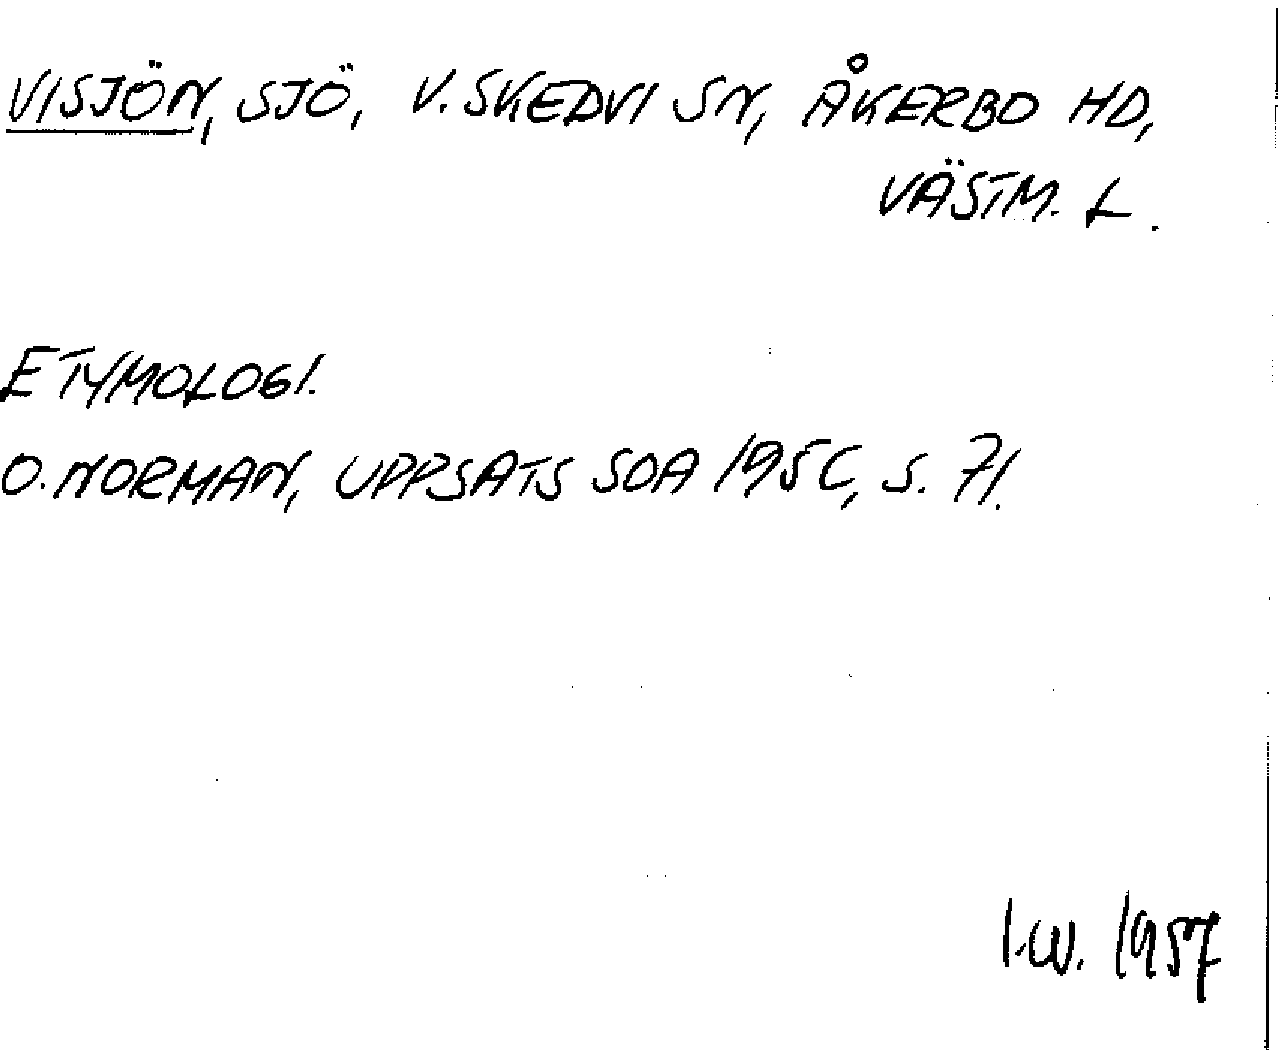 VISJÖN, SJÖ, V. SKEDVI SN, ÅKERBO HD,
VÄSTM. L.
ETYMOLOGI.
O. NORMAN, UPPSATS SOA 1956, S. 71.
I.W. 1957